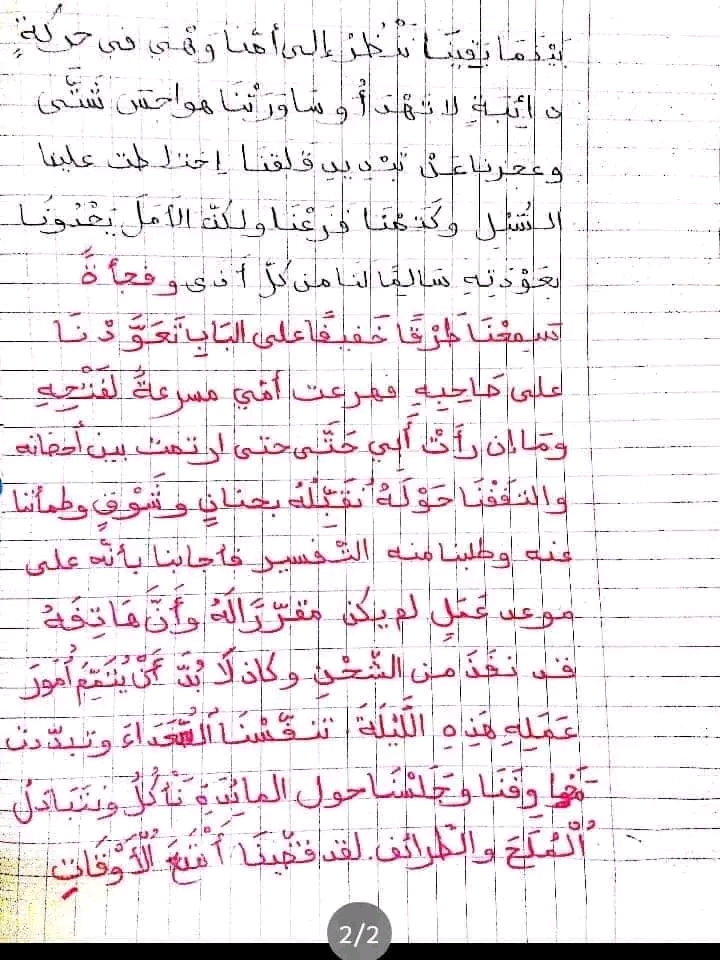 بَيْنَمَا بَقِينَا نَنْظُرُ إلى أمّنا وَهْيَ في حركةٍ
دائِبَةٍ لا تَهْدَأُ وسَاوَرَتْنَا هواجس شَتَّى
وعجزنا عَنْ تبْديدِ قلقنا إختلطت علينا
السُّبُل وكَتمْنَا فَزَعْنَا ولكنّ الأمَلَ يَحْدُونَا
بعَوْدَتِهِ سَالِمًا لنا من كلّ أذى وفجأةً
سَمِعْنَا طرْقًا خَفيفًا على البَابِ تَعَوَّدْنَا
على صَاحِبِهِ فهرعت أمّي مسرعةً لفَتْحِهِ
وَمَا إن رأتْ أَبي حَتَّى حتى ارتمت بين أحضانه
والتَفَفْنَا حَوْلَهُ نُقَبِّلُهُ بحنانٍ وشَوْقٍ وطمأننا
عنه وطلبنا منه التّفسير فأجابنا بأنّه على
موعد عَمَلٍ لم يكن مقرّرًا لَهُ وأَنَّ هَاتِفَهُ
قد نفَذَ من الشّحْنِ وكان لَا بُدَّ أَنْ يُتَمِّمَ أُمُورَ
عَمَلِهِ هَذِهِ اللَّيْلَةَ تنفّسْنَا الصُّعَدَاءَ وتبدّدت
مخاوفَنَا وَجَلسْنَا حول المائِدَةِ نَأْكُلُ ونتبَادَلُ
الْمُلَحَ والطّرائف. لقد قضّينَا أَمْتَعَ الْأَوْقَاتِ
2/2